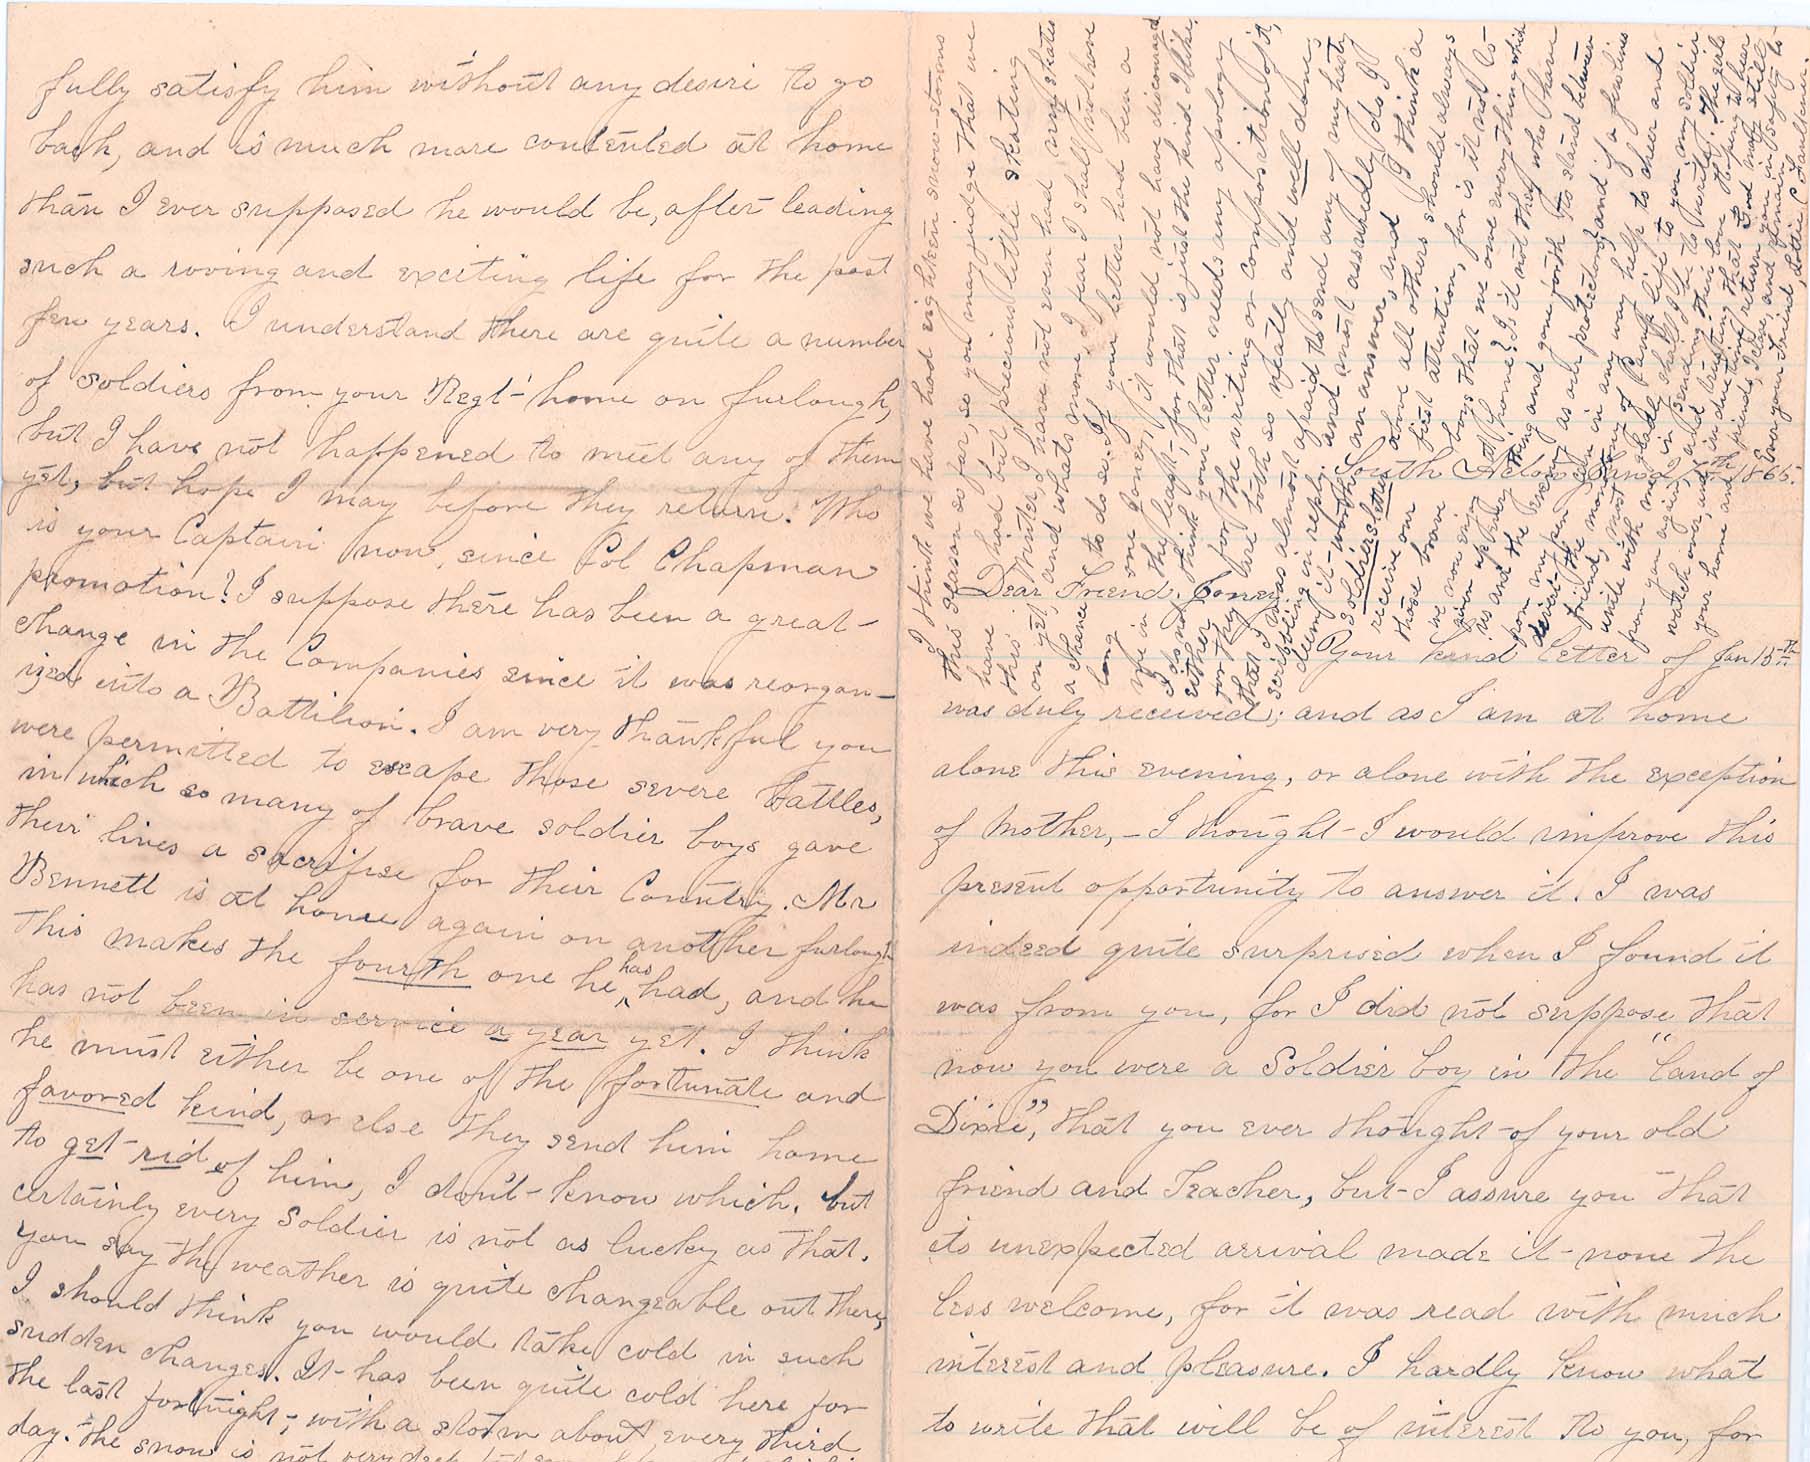 South Acton Jan'y, 25th 1865.
Dear Friend. Coney
Your kind letter of Jan 13th
was duly received; and as I am at home
alone this evening, or alone with the exception
of Mother, - I thought I would improve this
present opportunity to answer it. I was
indeed quite surprised when I found it
was from you, for I did not suppose that
now you were a Soldier boy in the "land of
Dixie", that you ever thought of your old
friend and Teacher, but I assure you that
its unexpected arrival made it none the
less welcome, for it was read with much
interest and pleasure. I hardly know what
to write that will be of interest to you, for
fully satisfy him without any desire to go
back, and is much more contented at home
than I ever supposed he would be, after leading
such a roving and exciting life for the past
few years. I understand there are quite a number
of soldiers from your Regt' home on furlough,
but I have not happened to meet any of them
yet, but hope I may before they return. Who
is your Captain now, since Col Chapman
promotion? I suppose there has been a great
change in the Companies since it was reorgan-
ized into a Battilion. I am very thankful you
were permitted to escape those severe battles,
in which so many of brave soldier boys gave
their lives a sacrifise for their Country. Mr
Bennett is at home again on another furlough
This makes the fourth one he has had, and he
has not been in service a year yet. I think
he must either be one of the fortunate and
favored kind, or else they send him home
to get rid of him, I don't know which. but
certainly every soldier is not as lucky as that.
you say the weather is quite changeable out there,
I should think you would take cold in such
sudden changes. It has been quite cold here for
the last fortnight, with a storm about every third
day. the snow is not very deep
I think we have had eighteen snow-storms
this season so far, so you may judge that we
have had but precious little skating
this Winter, I have not even had my skates
on yet, and whats more, I fear I shall not have
a chance to do so. If your letter had been a
long one Coney, it would not have discouraged
me in the least, for that is just the kind I like.
I do not think your letter needs any apology
either for the writing or composition of it,
for they are both so neatly and well done,
that I was almost afraid to send any of my hasty
scribbling in reply. and most assuredly do I
deem it worthy an answer, and I think a
soldiers letter above all others should always
receive our first attention, for is it not to
those brave boys that we owe everything which
we now enjoy at home? Is it not they who have
given up every thing and gone forth to stand between
us and the enemy as our protectors, and if a few lines
from my pen can in any way help to cheer and
divert the monotony of Camp life to you my soldier
friend, most gladly shall I be to write. The girls
unite with me in sending their love. Hoping to hear
from you again, and trusting that God may still
watch over, and in due time return you in safety to
your home and friends, I close, and remain
Ever your Friend, Lottie C Faulkner.